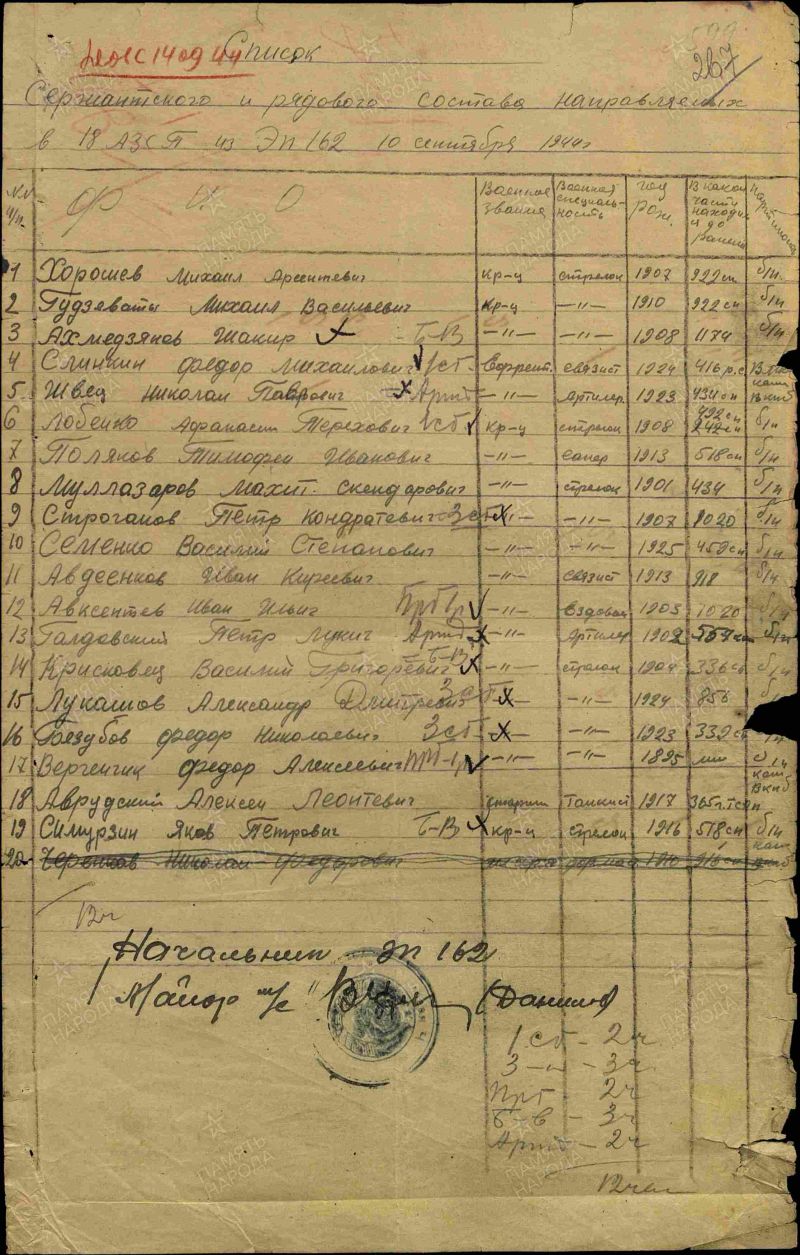 Список
267
Сержантского и рядового состава направляемых
в 18 АЗСП из ЭП 162 10 сентября 1944г
№№ п/п. Ф И О Военное звание Военная специаль-ность год рож. В какой части находил до ранен
1 Хорошев Михаил Арсентевич кр-ц стрелок 1907 922 сп б/п
2 Гудзеваты Михаил Васильевич кр-ц -"- 1910 922 сп б/п
3 Ахмедзянов Шакир Б-В -"- -"- 1908 1174 б/п
4 Слинкин Федор Михаилович 1сб связист 1924 416
5 Швец Николай Артб -"- Артилер 1923 434 сп
6 Лобенко Афанасий Терехович 1сб кр-ц стрелок 1908 б/п
7 Поляков Тимофей Иванович -"- сапер 1913 518 сп б/п
8 Муллазаров Махит. Скендарович -"- стрелок 1901 434 б/п
9 Строганов Петр Кондратевич 3сб -"- -"- 1907 1020 б/п
10 Семенко Василий Степанович -"- -"- 1925 459 сп б/п
11 Авдеенков Иван -"- связист 1913 918 б/п
12 Авксентев Иван Ильич -"- ездовой 1903 1020 б/п
13 Галдавский Петр Лукич Артб -"- Артилер 1902 б/п
14 Крисковец Василий Григоревич Б-В -"- стрелок 1904 336 сп б/п
15 Лукашов Александр Дмитревич 3сб -"- -"- 1924 856 б/п
16 Беззубов Федор Николаевич 3сб -"- -"- 1923 339 сп б/п
17 Вергенчик Федор Алексеевич -"- -"- 1895 б/п
18 Аврудский Алексей Леонтевич старши Танкист 1917
19 Симурзин Яков Петрович Б-В кр-ц стрелок 1916 518 сп б/п
20 Николай Федорович 1910
12ч
Начальник ЭП 162
Майор м/с
1 сб - 2ч
3 -"- 3ч
Прб - 2ч
Б-в - 3ч
Артб - 2ч
12чел
ПАМЯТЬ НАРОДА